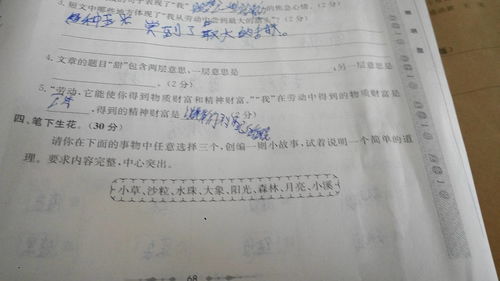 3. 短文中哪些地方体现了"我从劳动中尝到最大的甜头"?(2分)
种玉米 尝到了最大的甜头。
4. 文章的题目"甜"包含两层意思,一层意思是 ,另一层意思是
。(2分)
5. "劳动,它能使你得到物质财富和精神财富。""我"在劳动中得到的物质财富是
,得到的精神财富是 。(2分)
四、笔下生花。(30分)
请你在下面的事物中任意选择三个,创编一则小故事,试着说明一个简单的道
理。要求内容完整,中心突出。
小草、沙粒、水珠、大象、阳光、森林、月亮、小溪
68